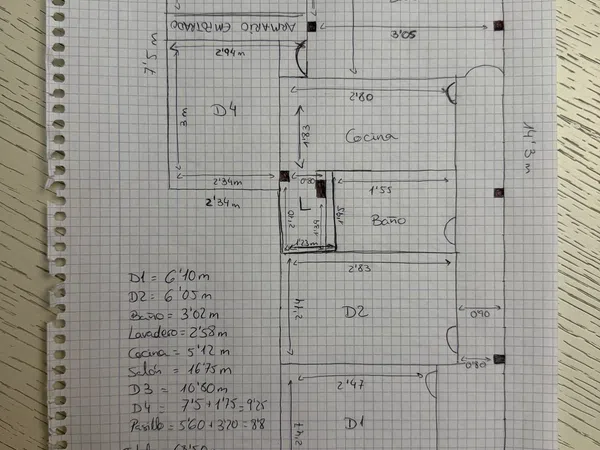 ARMARIO EMPOTRADO
3'05
7'5 m
2'94m
2'80
D4
3m
1'83
Cocina
14'3 m
2'34m
0'80
1'55
2'34m
L
2'10
1'39
1'95
Baño
1'23m
2'83
2'14
D2
0'90
0'80
2'47
D1
2'47
D1 = 6'10 m
D2 = 6'05 m
Baño = 3'02 m
Lavadero = 2'58 m
Cocina = 5'12 m
Salón = 16'75 m
D3 = 10'60 m
D4 = 7'5 + 1'75 = 9'25
Pasillo = 5'60 + 3'20 = 8'8